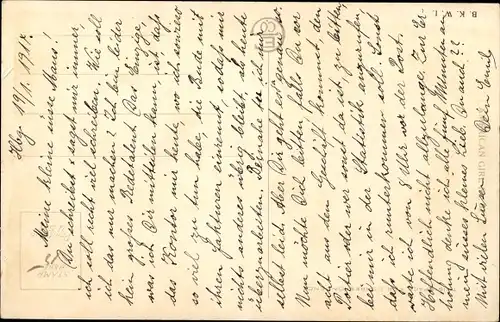 Hbg. 19/1. 1911.
Meine kleine süsse Maus!
Du schreibst sagst mir immer,
ich soll recht viel schreiben. Wie soll
ich das nur machen? Ich bin leider
kein grosses Redetalent. Das Einzige,
was ich Dir mitteilen kann, ist, dass
das Kontor mir heute, wo ich sowieso
so viel zu tun habe, die Bude mit
ihren Fakturen einrennt, sodass mir
nichts anderes übrig bleibt, als heute
überzuarbeiten. Beinahe ich mir
selbst leid. Aber Dir geht es ja genau so.
Nun möchte Dich bitten, falls Du vor
acht aus dem Geschäft kommst, den
Portier oder wer sonst da ist, zu bitten,
bei mir in der Statistik anzurufen
daß ich runterkommen soll. Sonst
warte ich von 8 Uhr vor der Post.
Hoffentlich nicht allzulange. Zur Er-
höhung denke ich alle fünf Minuten an
mein süsses kleines Lieb. Du auch??
Mit vielen Küssen
Dein Emil
B.K.W.I.